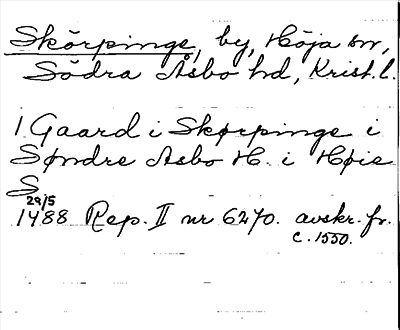 Skörpinge, by, Höja sn,
Södra Åsbo hd, Krist. l.
1 Gaard i Skørpinge i
Søndre Asbo H. i Høie
S
29/5
1488 Rep. II nr 6270. avskr. fr.
c. 1550.